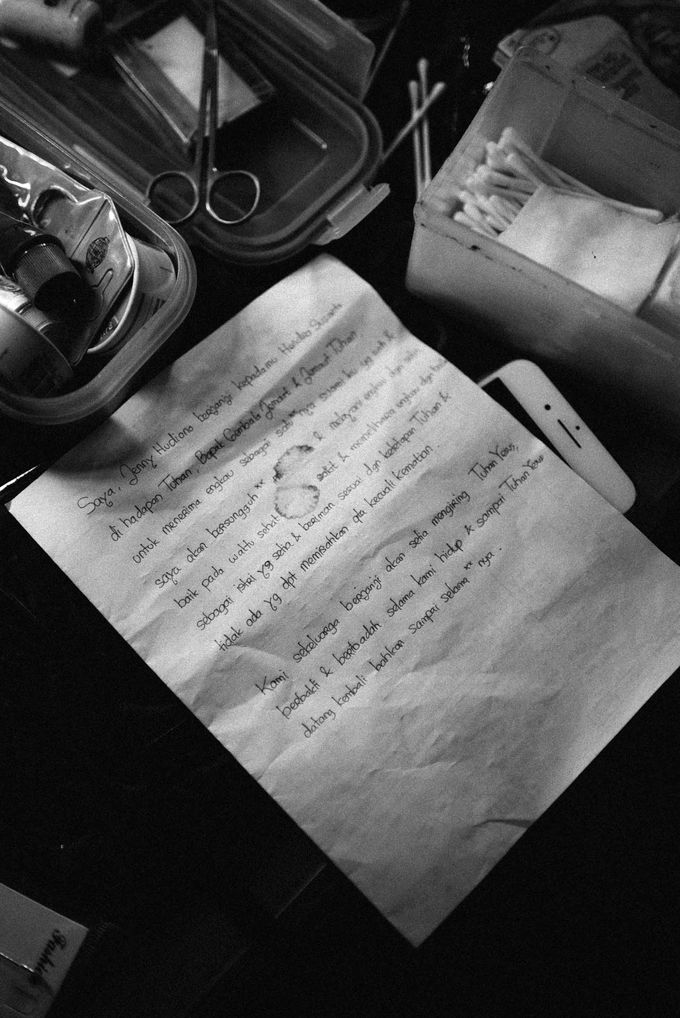 Saya, Jenny Hudiono berjanji kepadamu
di hadapan Tuhan, Bapak Gembala Jemaat & Jemaat Tuhan
untuk menerima engkau sebagai satu**nya suami
saya akan bersungguh** & melayani engkau
baik pada waktu sehat sakit & memelihara engkau dgn
sebagai istri yg setia & beriman sesuai dgn ketetapan Tuhan &
tidak ada yg dpt memisahkan qta kecuali Kematian.
Kami sekeluarga berjanji akan setia mengiring Tuhan Yesus,
berbakti & beribadah selama kami hidup & sampai Tuhan Yesus
datang kembali bahkan sampai selama**nya.